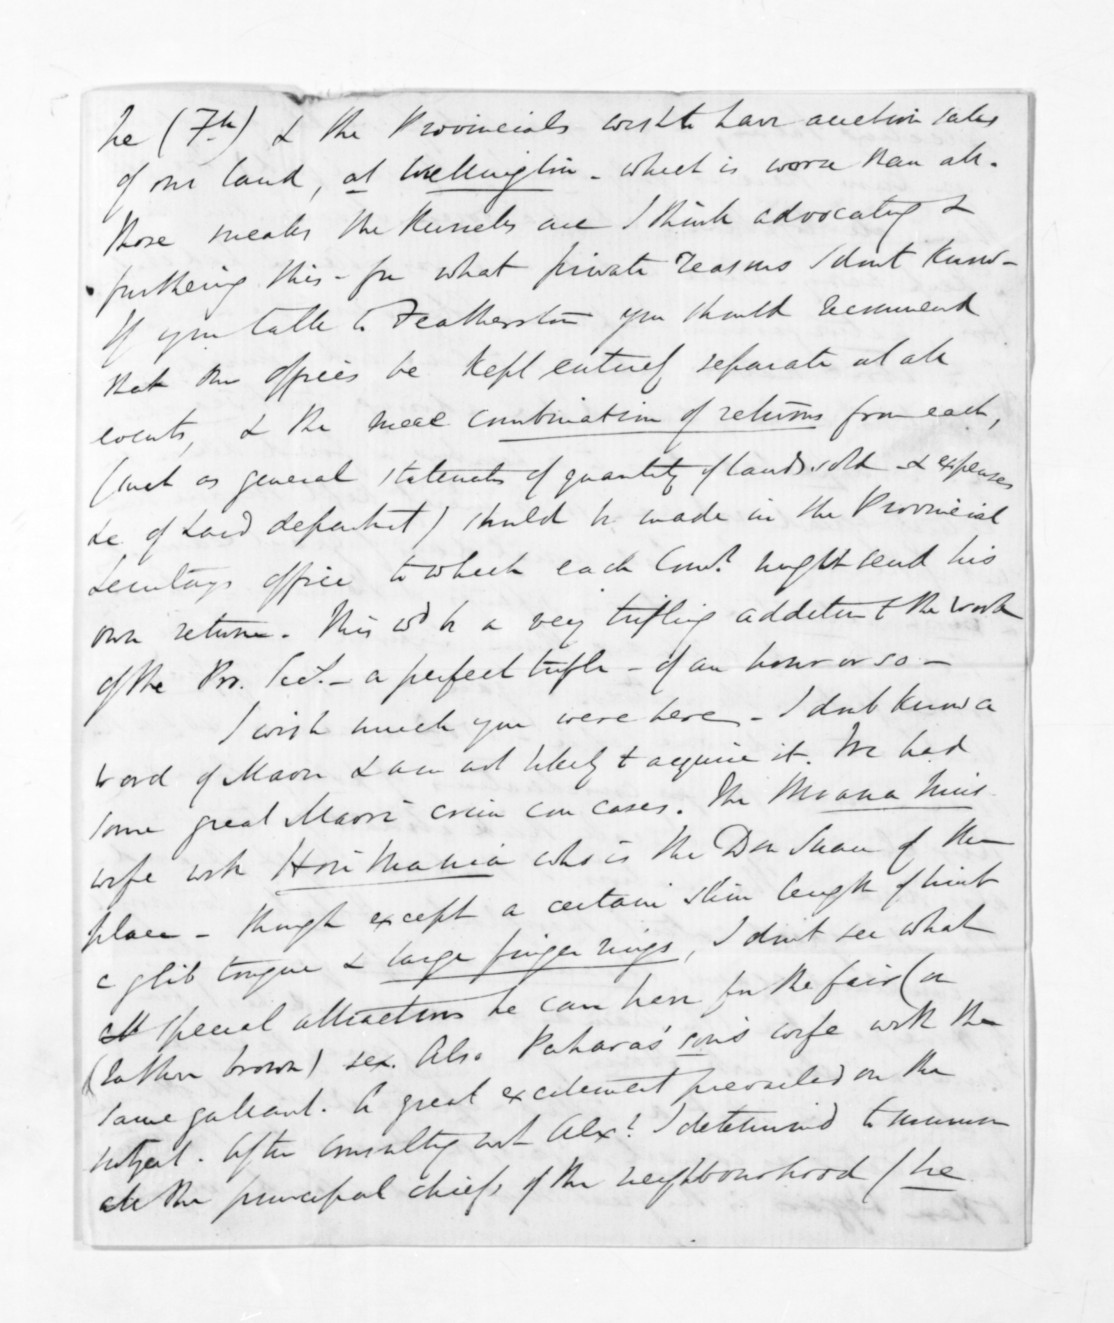 he (Fth) & the Provincials wish to have auction sales
of our land, at Wellington - which is worse than all.
Those sneaks the Russells are I think advocating &
furthering this - for what private reasons I dont know -
If you talk to Featherston you should recommend
that the offices be kept entirely separate at all
events, & the mere combination of returns from each,
(such as general statements of quantity of lands sold & expenses
&c of Land department) should be made in the Provincial
Secretarys office to which each Comr. might send his
own return. This wd be a very trifling addition to the work
of the Pro. Sec. - a perfect trifle - of an hour or so -
I wish much you were here - I dont know a
word of Maori & am not likely to acquire it. We had
some great Maori crim con cases. The Moananuis
wife with Hori wh who is the Don Juan of the
place - though except a certain slim length of limb
a glib tongue & large finger rings, I don't see what
special attractions he can have for the fair (or
(rather brown) sex. Also Paharas' son's wife with the
same gallant. A great excitement prevailed on the
subject. After consulting with Alexr. I determined to summon
all the principal chiefs of the neighbourhood (he